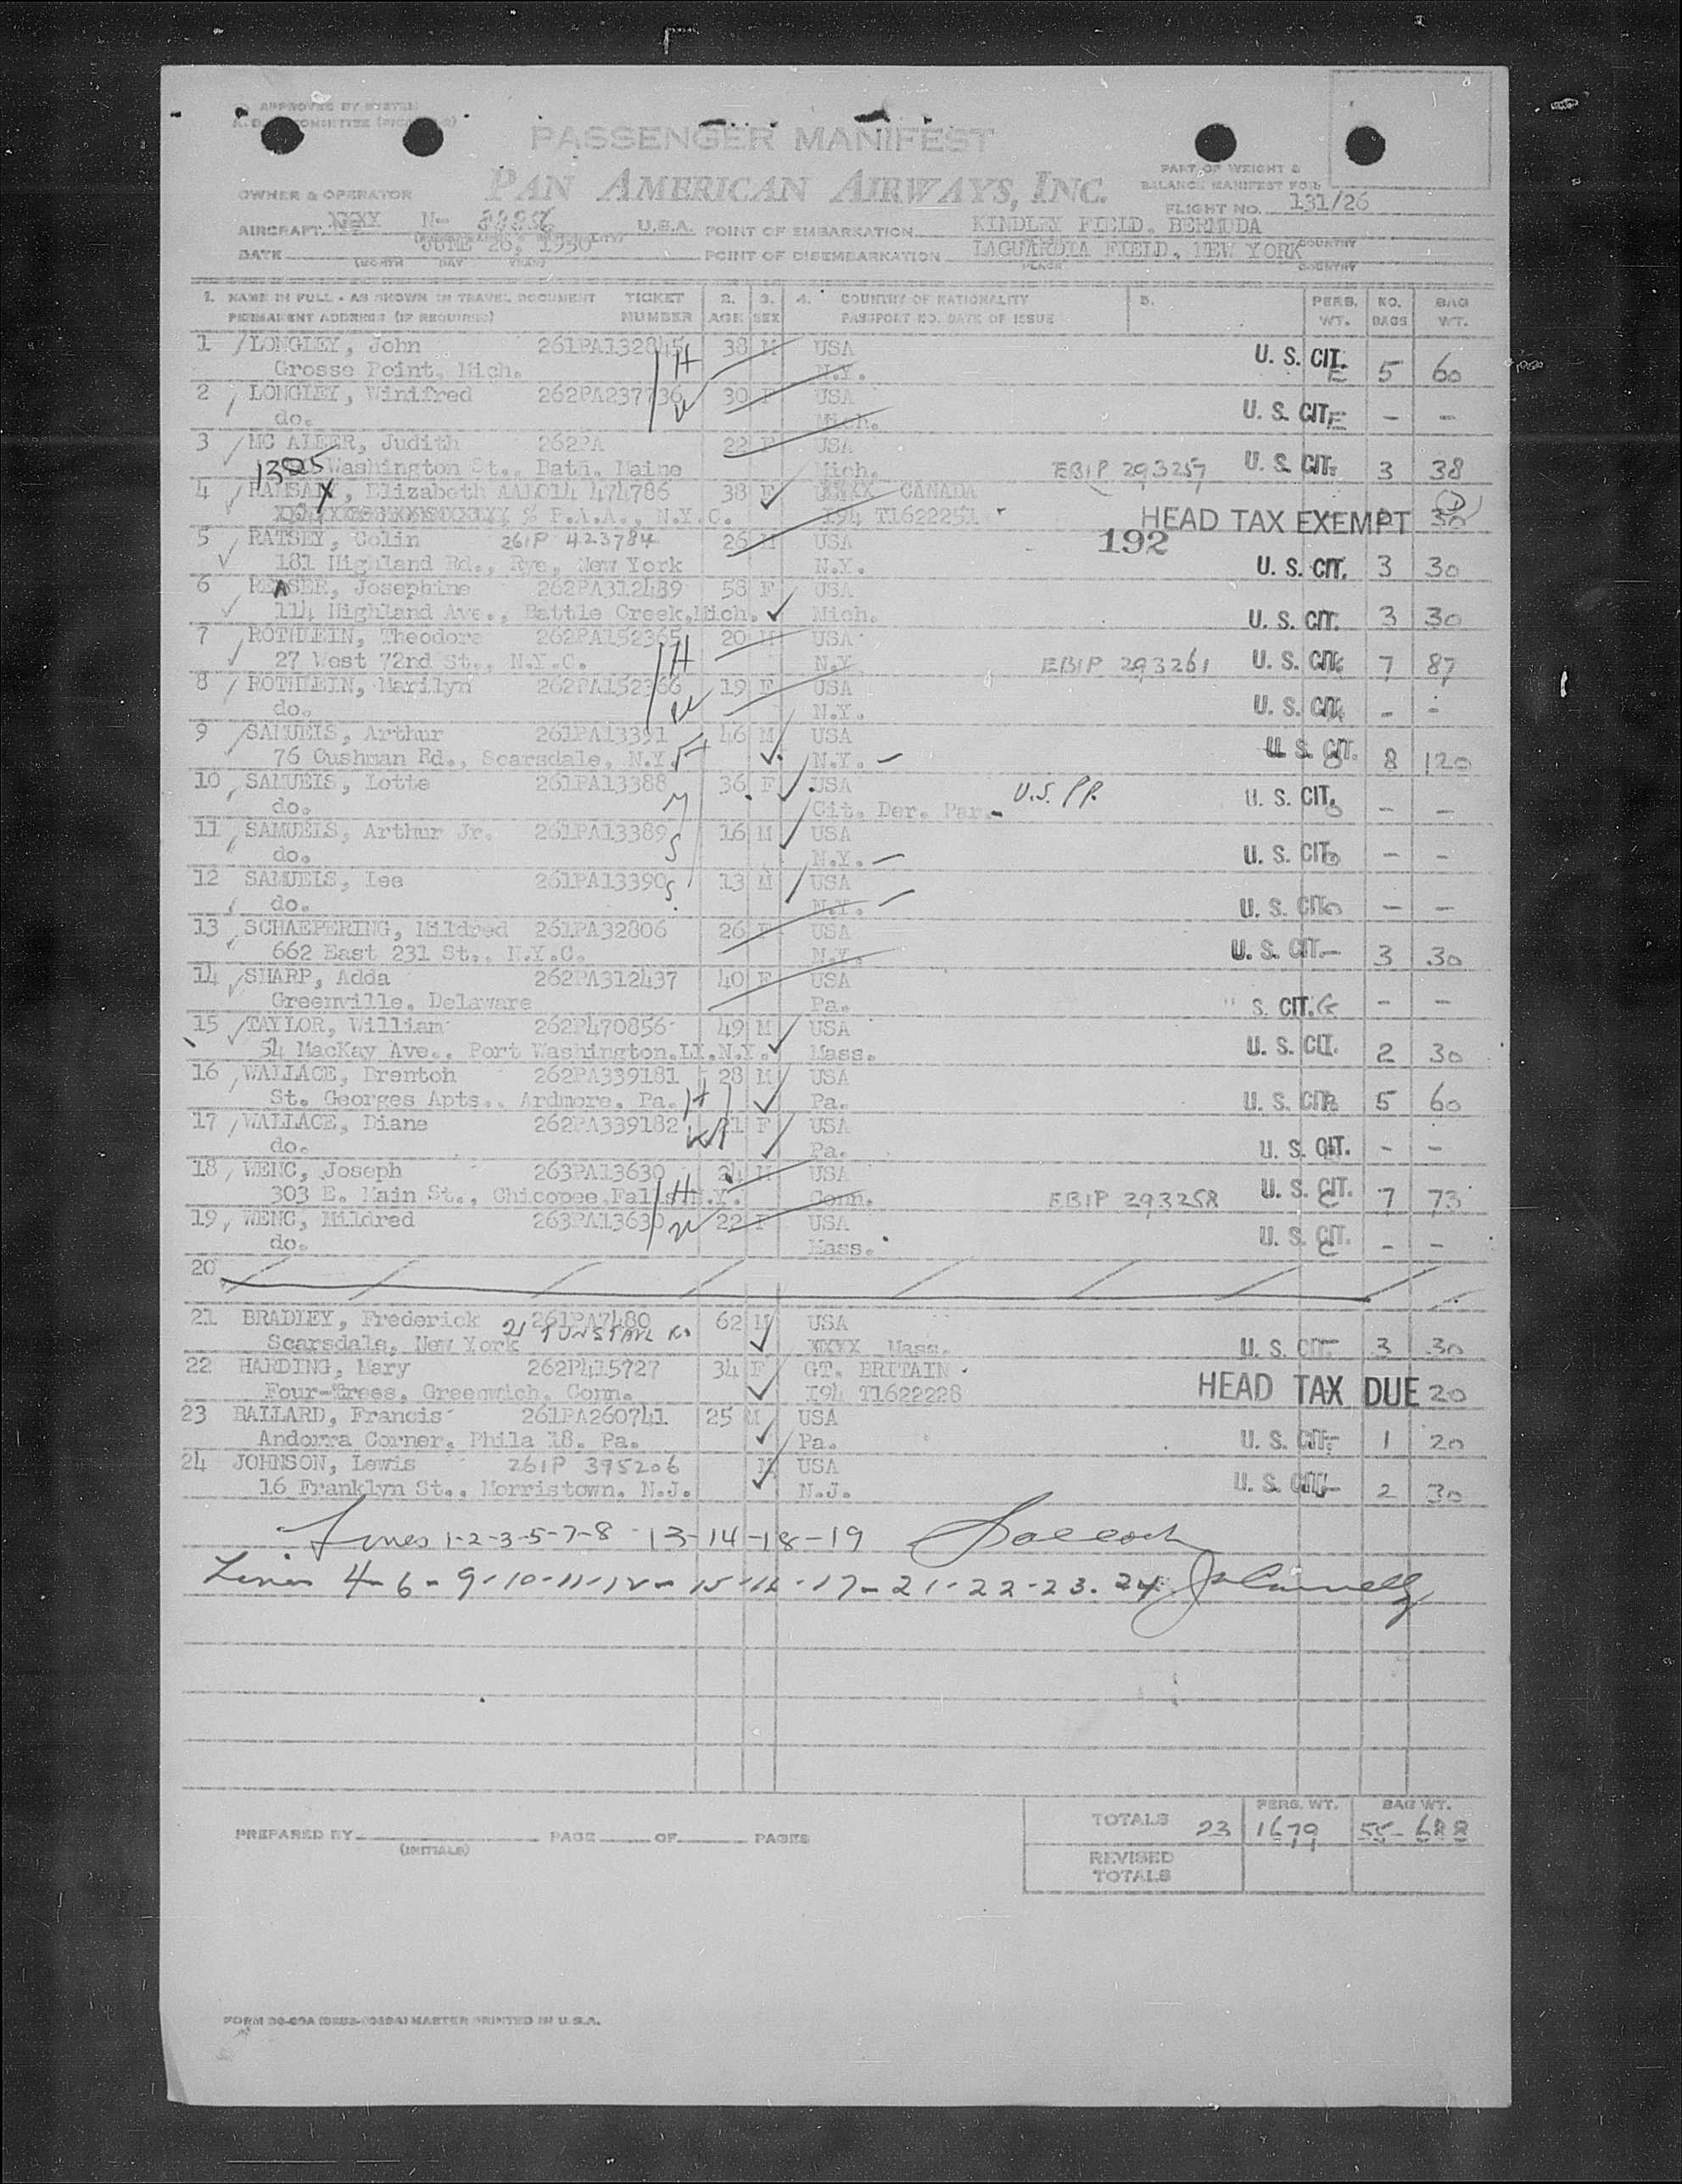 APPROVED BY SYSTEM
PASSENGER MANIFEST
PART OF WEIGHT &
BALANCE MANIFEST FOR
OWNER & OPERATOR PAN AMERICAN AIRWAYS, INC.
FLIGHT NO. 131/26
AIRCRAFT N- U.S.A. POINT OF EMBARKATION KINDLEY FIELD, BERMUDA
DATE JUNE 26, 1950 POINT OF DISEMBARKATION LAGUARDIA FIELD, NEW YORK
(MONTH DAY YEAR) PLACE COUNTRY
1. NAME IN FULL - AS SHOWN IN TRAVEL DOCUMENT TICKET 2. 3. 4. COUNTRY OF NATIONALITY 5. PERS. NO. BAG
PERMANENT ADDRESS (IF REQUIRED) NUMBER AGE SEX PASSPORT NO. DATE OF ISSUE WT. BAGS WT.
1 LONGLEY, John 261PA132845 38 M USA U. S. CIT. 5 60
Grosse Point, Mich. H N.Y.
2 LONGLEY, Winifred 262PA237736 30 F USA U. S. CIT. - -
do. W Mich.
3 MC ALEER, Judith 262PA 22 F USA
1305 Washington St., Bath, Maine Mich. EBIP 293257 U. S. CIT. 3 38
4 RAMSAY, Elizabeth AA1014 474786 38 F CANADA
% P.A.A., N.Y.C. I94 T1622251 HEAD TAX EXEMPT 30
192
5 RATSEY, Colin 261P 423784 26 M USA
181 Highland Rd., Rye, New York N.Y. U. S. CIT. 3 30
6 REASER, Josephine 262PA312489 58 F USA
114 Highland Ave., Battle Creek, Mich. Mich. U. S. CIT. 3 30
7 ROTHLEIN, Theodore 262PA152365 20 M USA
27 West 72nd St., N.Y.C. H N.Y. EBIP 293261 U. S. CIT. 7 87
8 ROTHLEIN, Marilyn 262PA152366 19 F USA
do. N.Y. U. S. CIT. - -
9 SAMUELS, Arthur 261PA13391 46 M USA
76 Cushman Rd., Scarsdale, N.Y. N.Y. U. S. CIT. 8 120
10 SAMUELS, Lotte 261PA13388 36 F USA U.S. PP.
do. Cit. Der. Par. U. S. CIT. - -
11 SAMUELS, Arthur Jr. 261PA13389 16 M USA
do. S N.Y. U. S. CIT. - -
12 SAMUELS, Lee 261PA13390 13 M USA
do. S N.Y. U. S. CIT. - -
13 SCHAEPERING, Mildred 261PA32806 26 F USA
662 East 231 St., N.Y.C. N.Y. U. S. CIT. 3 30
14 SHARP, Adda 262PA312437 40 F USA
Greenville, Delaware Pa. S. CIT. - -
15 TAYLOR, William 262P470856 49 M USA
54 MacKay Ave., Port Washington, LI.N.Y. Mass. U. S. CIT. 2 30
16 WALLACE, Brenton 262PA339181 28 M USA
St. Georges Apts., Ardmore, Pa. H Pa. U. S. CIT. 5 60
17 WALLACE, Diane 262PA339182 21 F USA
do. W Pa. U. S. CIT. - -
18 WENC, Joseph 263PA13630 24 M USA
303 E. Main St., Chicopee Falls N.Y. H Conn. EBIP 293258 U. S. CIT. 7 73
19 WENC, Mildred 263PA13630 22 F USA
do. W Mass. U. S. CIT. - -
20
21 BRADLEY, Frederick 261PA7480 62 M USA
Scarsdale, New York 21 TUNSTALL RD XXXX Mass. U. S. CIT. 3 30
22 HARDING, Mary 262P415727 34 F GT. BRITAIN
Four-Trees, Greenwich, Conn. I94 T1622228 HEAD TAX DUE 20
23 BALLARD, Francis 261PA260741 25 M USA
Andorra Corner, Phila 18, Pa. Pa. U. S. CIT. 1 20
24 JOHNSON, Lewis 261P 395206 M USA
16 Franklyn St., Morristown, N.J. N.J. U. S. CIT. 2 30
Lines 1-2-3-5-7-8 -13-14-18-19
Lines 4-6-9-10-11-12-15-16-17-21-22-23-24
PREPARED BY PAGE OF PAGES
(INITIALS)
PERS. WT. BAG WT.
TOTALS 23 1679 55- 688
REVISED
TOTALS
MASTER PRINTED IN U.S.A.